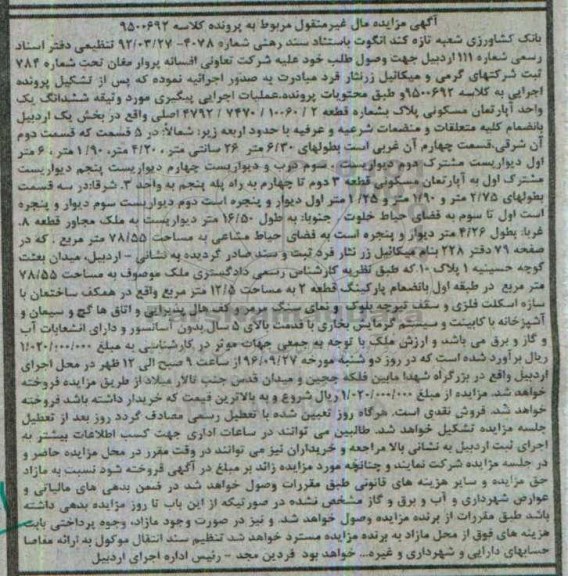 آگهی مزایده مال غیرمنقول مربوط به پرونده کلاسه ۹۵۰۰۶۹۲
بانک کشاورزی شعبه تازه کند انگوت باستناد سند رهنی شماره ۴۰۷۸- ۹۲/۰۳/۲۷ تنظیمی دفتر اسناد
رسمی شماره ۱۱۱ اردبیل جهت وصول طلب خود علیه شرکت تعاونی افسانه پروار مغان تحت شماره ۷۸۴
ثبت شرکتهای گرمی و میکائیل زرنثار فرد مبادرت به صدور اجرائیه نموده که پس از تشکیل پرونده
اجرایی به کلاسه ۹۵۰۰۶۹۲و طبق محتویات پرونده.عملیات اجرایی پیگیری مورد وثیقه ششدانگ یک
واحد آپارتمان مسکونی پلاک بشماره قطعه ۲ / ۱۰۰۶۰ / ۷۴۷۰ / ۴۷۹۲ اصلی واقع در بخش یک اردبیل
بانضمام کلیه متعلقات و منضمات شرعیه و عرفیه با حدود اربعه زیر: شمالاً: در ۵ قسمت که قسمت دوم
آن شرقی.قسمت چهارم آن غربی است بطولهای ۶/۳۰ متر ۲۶ سانتی متر ، ۴/۲۰ متر، ۱/۹۰ متر ، ۶ متر
اول دیواریست مشترک دوم دیواریست . سوم درب و دیواریست چهارم دیواریست پنجم دیواریست
مشترک اول به آپارتمان مسکونی قطعه ۳ دوم تا چهارم به راه پله پنجم به واحد ۳. شرقا:در سه قسمت
بطولهای ۲/۷۵ متر و ۱/۹۰ متر و ۲/۲۵ متر اول دیوار و پنجره است دوم دیواریست سوم دیوار و پنجره
است اول تا سوم به فضای حیاط خلوت . جنوبا: به طول ۱۶/۵۰ متر دیواریست به ملک مجاور قطعه ۸.
غربا: بطول ۴/۲۶ متر دیوار و پنجره است به فضای حیاط مشاعی به مساحت ۷۸/۵۵ متر مربع . که در
صفحه ۷۹ دفتر ۲۲۸ بنام میکائیل زر نثار فرد ثبت و سند صادر گردیده به نشانی - اردبیل، میدان بعثت
کوچه حسینیه ۱ پلاک ۱۰.که طبق نظریه کارشناس رسمی دادگستری ملک موصوف به مساحت ۷۸/۵۵
متر مربع در طبقه اول بانضمام پارکینگ قطعه ۲ به مساحت ۱۲/۵ متر مربع واقع در همکف ساختمان با
سازه اسکلت فلزی و سقف تیرچه بلوک و نمای سنگ مرمر کف هال پذیرائی و اتاق ها گچ و سیمان و
آشپزخانه با کابینت و سیستم گرمایش بخاری با قدمت بالای ۵ سال بدون آسانسور و دارای انشعابات آب
و گاز و برق می باشد و ارزش ملک با توجه به جمعی جهات موثر در کارشناسی به مبلغ ۱/۰۲۰/۰۰۰/۰۰۰
ریال برآورد شده است که در روز دو شنبه مورخه ۹۶/۰۹/۲۷ از ساعت ۹ صبح الی ۱۲ ظهر در محل اجرای
اردبیل واقع در بزرگراه شهدا مابین فلکه ججین و میدان قدس جنب تالار میلاد از طریق مزایده فروخته
خواهد شد. مزایده از مبلغ ۱/۰۲۰/۰۰۰/۰۰۰ ریال شروع و به بالاترین قیمت که خریدار داشته باشد فروخته
خواهد شد. فروش نقدی است. هرگاه روز تعیین شده با تعطیل رسمی مصادف گردد روز بعد از تعطیل
جلسه مزایده تشکیل خواهد شد. طالبین می توانند در ساعات اداری جهت کسب اطلاعات بیشتر به
اجرای ثبت اردبیل به نشانی بالا مراجعه و خریداران نیز می توانند در وقت مقرر در محل مزایده حاضر و
در جلسه مزایده شرکت نمایند و چنانچه مورد مزایده زائد بر مبلغ در آگهی فروخته شود نسبت به مازاد
حق مزایده و سایر هزینه های قانونی طبق مقررات وصول خواهد شد در ضمن بدهی های مالیاتی و
عوارض شهرداری و آب و برق و گاز مشخص نشده در صورتیکه از این باب تا روز مزایده بدهی داشته
باشد طبق مقررات از برنده مزایده وصول خواهد شد. و نیز در صورت وجود مازاد، وجوه پرداختی بابت
هزینه های فوق از محل مازاد به برنده مزایده مسترد خواهد شد تنظیم سند انتقال موکول به ارائه مفاصا
حسابهای دارایی و شهرداری و غیره... خواهد بود فردین مجد - رئیس اداره اجرای اردبیل